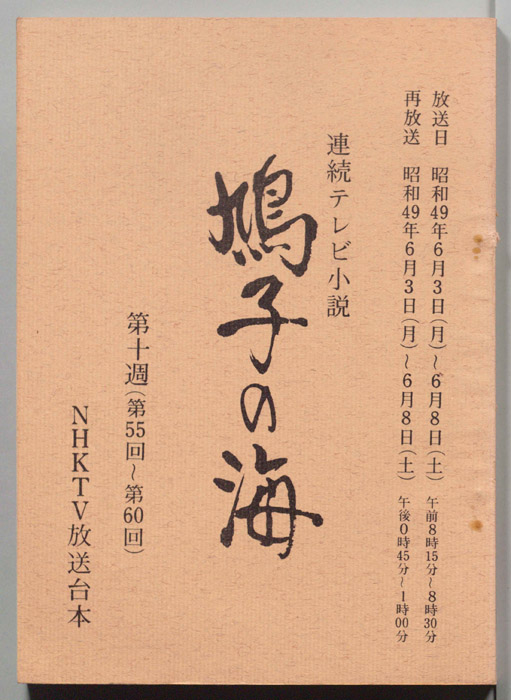 放送日 昭和49年6月3日(月)~6月8日(土) 午前8時15分~8時30分
再放送 昭和49年6月3日(月)~6月8日(土) 午後0時45分~1時00分
連続テレビ小説
鳩子の海
第十週(第55回~第60回)
NHKTV放送台本